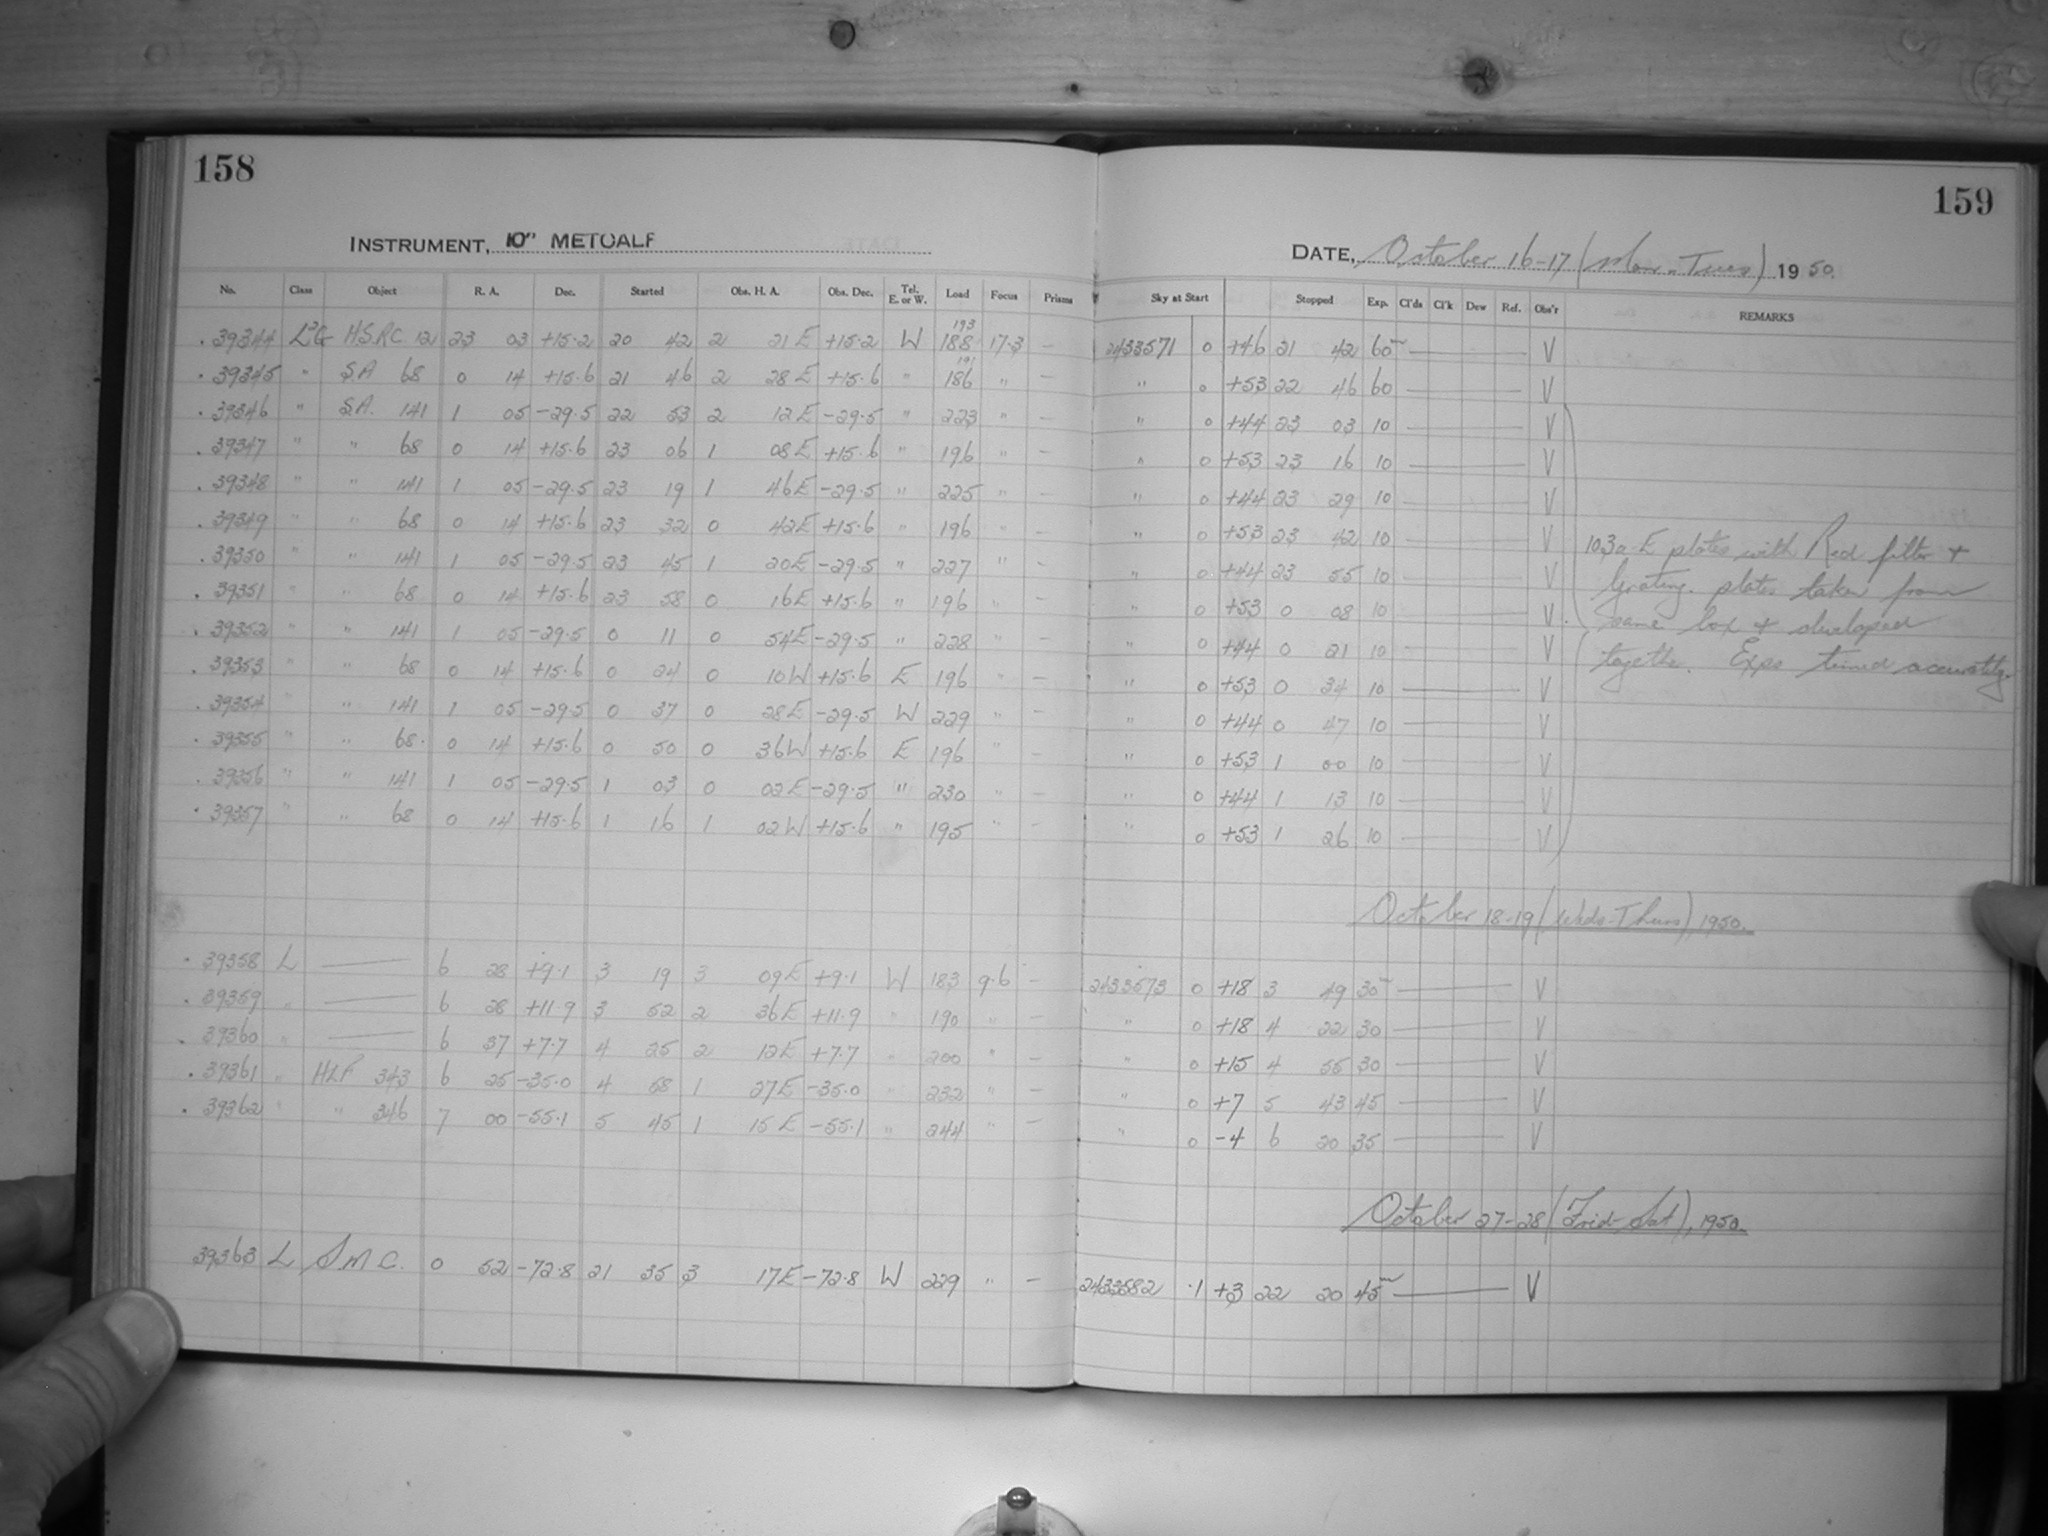 158
159
INSTRUMENT, 10" METCALF
DATE, October 16-17 (Mon-Tues) 1950.
No. Class Object R. A. Dec. Started Obs. H. A. Obs. Dec. Tel. E. or W. Load Focus Prisms Sky at Start Stopped Exp. Cl'ds Cl'k Dew Ref. Obs'r REMARKS
193
.39344 L²G H.S.R.C. 12 23 03 +15.2 20 42 2 21 E +15.2 W 188 17.3 — 2433571 0 +46 21 42 60m — V
191
.39345 " S.A 68 0 14 +15.6 21 46 2 28 E +15.6 " 186 " — " 0 +53 22 46 60 — V
.39346 " S.A. 141 1 05 -29.5 22 53 2 12 E -29.5 " 223 " — " 0 +44 23 03 10 — V
.39347 " " 68 0 14 +15.6 23 06 1 08 E +15.6 " 196 " — " 0 +53 23 16 10 — V
.39348 " " 141 1 05 -29.5 23 19 1 46 E -29.5 " 225 " — " 0 +44 23 29 10 — V
.39349 " " 68 0 14 +15.6 23 32 0 42 E +15.6 " 196 " — " 0 +53 23 42 10 — V
.39350 " " 141 1 05 -29.5 23 45 1 20 E -29.5 " 227 " — " 0 +44 23 55 10 — V
.39351 " " 68 0 14 +15.6 23 58 0 16 E +15.6 " 196 " — " 0 +53 0 08 10 — V
.39352 " " 141 1 05 -29.5 0 11 0 54 E -29.5 " 228 " — " 0 +44 0 21 10 — V
.39353 " " 68 0 14 +15.6 0 24 0 10 W +15.6 E 196 " — " 0 +53 0 34 10 — V
.39354 " " 141 1 05 -29.5 0 37 0 28 E -29.5 W 229 " — " 0 +44 0 47 10 — V
.39355 " " 68. 0 14 +15.6 0 50 0 36 W +15.6 E 196 " — " 0 +53 1 00 10 — V
.39356 " " 141 1 05 -29.5 1 03 0 02 E -29.5 " 230 " — " 0 +44 1 13 10 — V
.39357 " " 68 0 14 +15.6 1 16 1 02 W +15.6 " 195 " — " 0 +53 1 26 10 — V
103a-E plates with Red filter +
Grating. plates taken from
same box + developed
together. Exps timed accurately.
October 18-19 (Weds-Thurs), 1950.
.39358 L — 6 28 +9.1 3 19 3 09 E +9.1 W 183 9.6 — 2433573 0 +18 3 49 30m — V
.39359 " — 6 28 +11.9 3 52 2 36 E +11.9 " 190 " — " 0 +18 4 22 30 — V
.39360 " — 6 37 +7.7 4 25 2 12 E +7.7 " 200 " — " 0 +15 4 55 30 — V
.39361 " HLF 343 6 25 -35.0 4 58 1 27 E -35.0 " 232 " — " 0 +7 5 43 45 — V
.39362 " " 346 7 00 -55.1 5 45 1 15 E -55.1 " 244 " — " 0 -4 6 20 35 — V
October 27-28 (Frid-Sat), 1950.
39363 L S.M.C. 0 52 -72.8 21 35 3 17 E -72.8 W 229 " — 2433582 .1 +3 22 20 45m — V